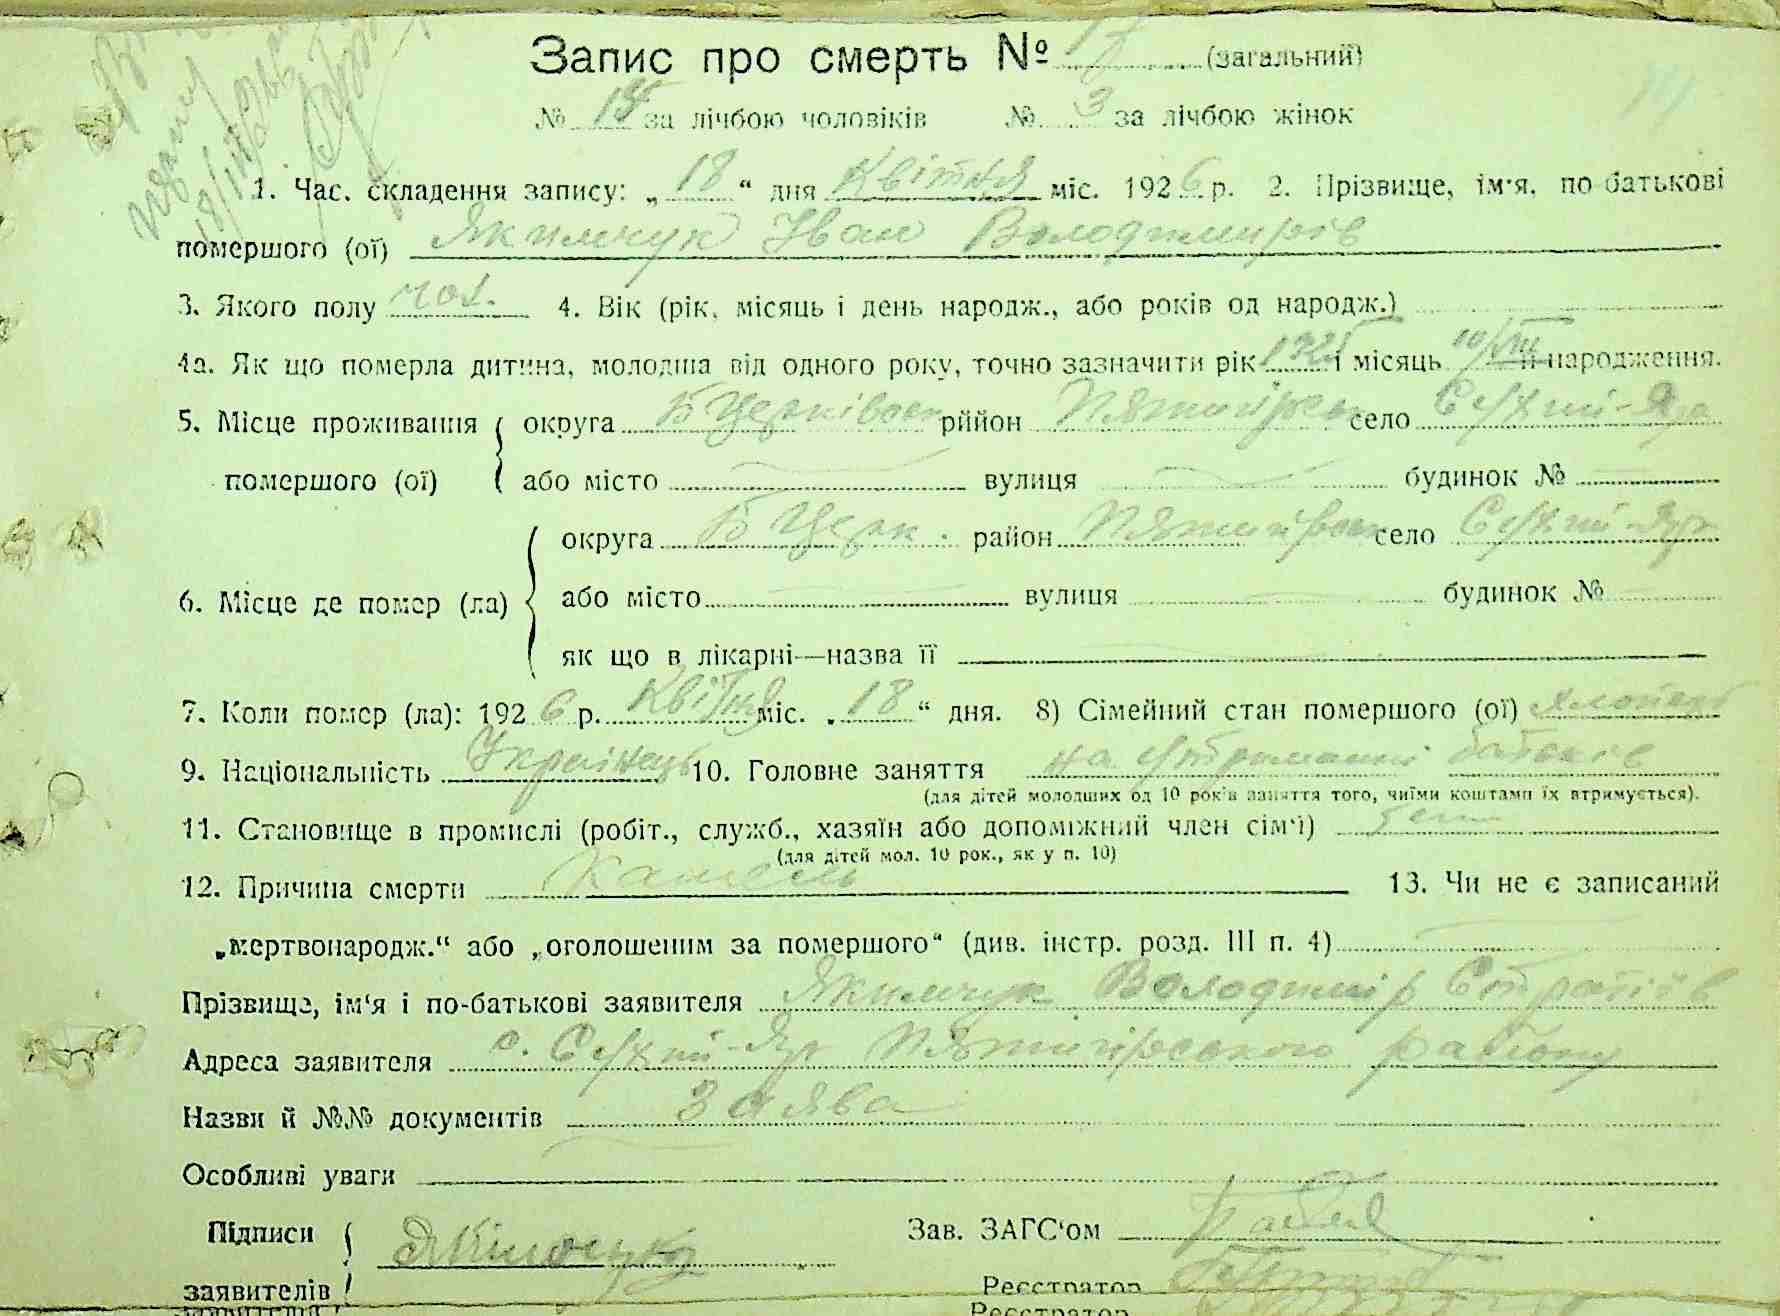 Запис про смерть № 17 (загальний)
№ 14 за лічбою чоловіків № 3 за лічбою жінок
1. Час. складення запису: „ 18 “ дня Квітня міс. 1926 р. 2. Прізвище, ім'я, по батькові
помершого (ої) Якимчук Іван Володимирів
3. Якого полу чол. 4. Вік (рік, місяць і день народж., або років од народж.)
4а. Як що померла дитина, молодша від одного року, точно зазначити рік 1925 і місяць 10/VIII її народження.
5. Місце проживання округа Б Церківськ рййон Пятигірськ село Сухий-Яр
помершого (ої) або місто вулиця будинок №
округа Б Церк. район Пятигірськ село Сухий-Яр
6. Місце де помер (ла) або місто вулиця будинок №
як що в лікарні—назва її
7. Коли помер (ла): 1926 р. Квітня міс. „ 18 “ дня. 8) Сімейний стан помершого (ої)
9. Національність Українець 10. Головне заняття на утриманні батьків
(для дітей молодших од 10 років заняття того, чиїми коштами їх втримується).
11. Становище в промислі (робіт., служб., хазяїн або допоміжний член сім'ї)
(для дітей мол. 10 рок., як у п. 10)
12. Причина смерти Кашель 13. Чи не є записаний
„мертвонародж.“ або „оголошеним за помершого“ (див. інстр. розд. III п. 4)
Прізвище, ім'я і по-батькові заявителя Якимчук Володимір
Адреса заявителя с. Сухий-Яр Пятигірського району
Назви й №№ документів Заява
Особливі уваги
Підписи Зав. ЗАГС'ом
заявителів Реєстратор